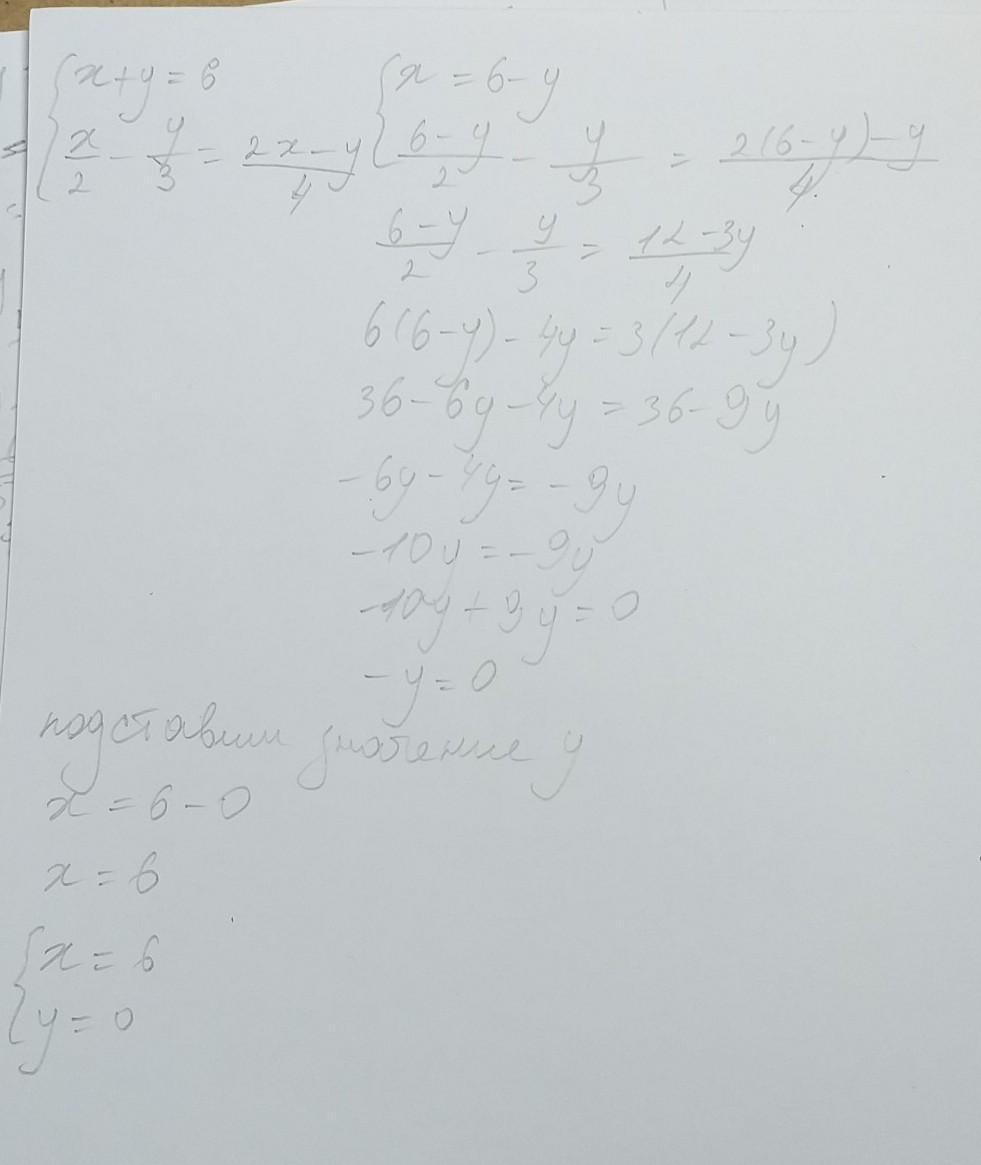 {x+y=6 {x=6-y
{x/2 - y/3 = 2x-y/4 {6-y/2 - y/3 = 2(6-y)-y/4
6-y/2 - y/3 = 12-3y/4
6(6-y)-4y=3(12-3y)
36-6y-4y=36-9y
-6y-4y=-9y
-10y=-9y
-10y+9y=0
-y=0
подставим значение y
x=6-0
x=6
{x=6
{y=0